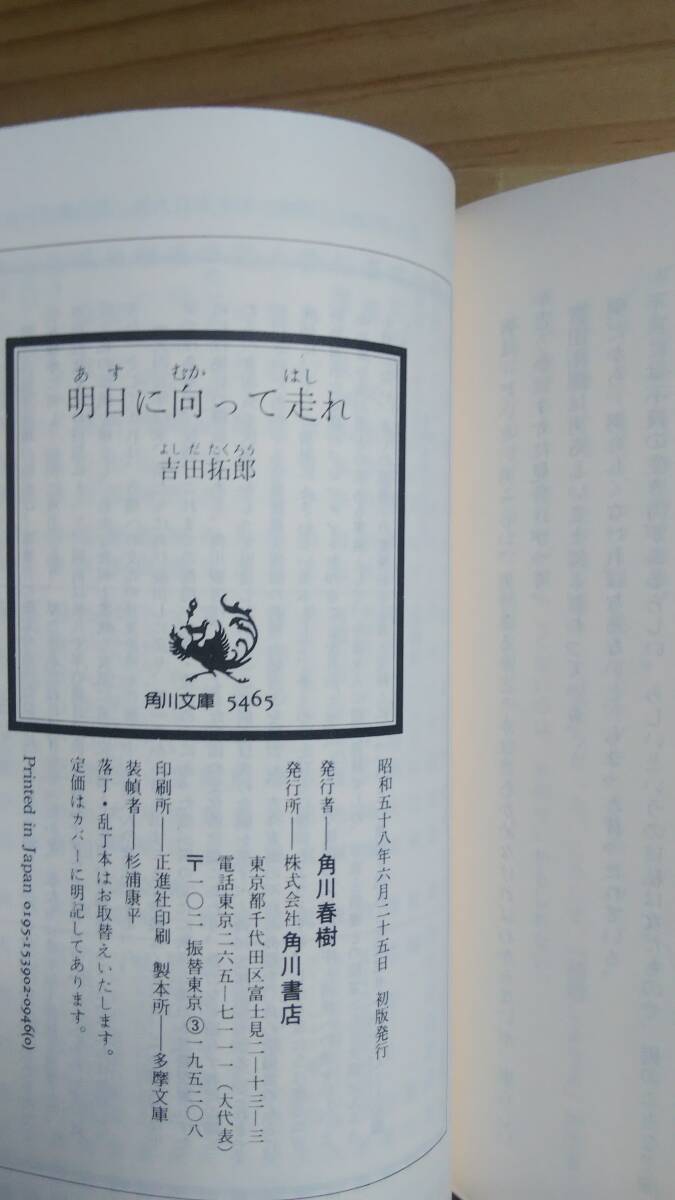 あす むか はし
明日に向って走れ
よしだ たくろう
吉田拓郎
角川文庫 5465
昭和五十八年六月二十五日 初版発行
発行者――角川春樹
発行所――株式会社 角川書店
東京都千代田区富士見二―十三―三
電話東京二六五―七一一一(大代表)
〒一〇二 振替東京③一九五二〇八
印刷所――正進社印刷 製本所――多摩文庫
装幀者――杉浦康平
落丁・乱丁本はお取替えいたします。
定価はカバーに明記してあります。
Printed in Japan 0195-153902-0946(0)